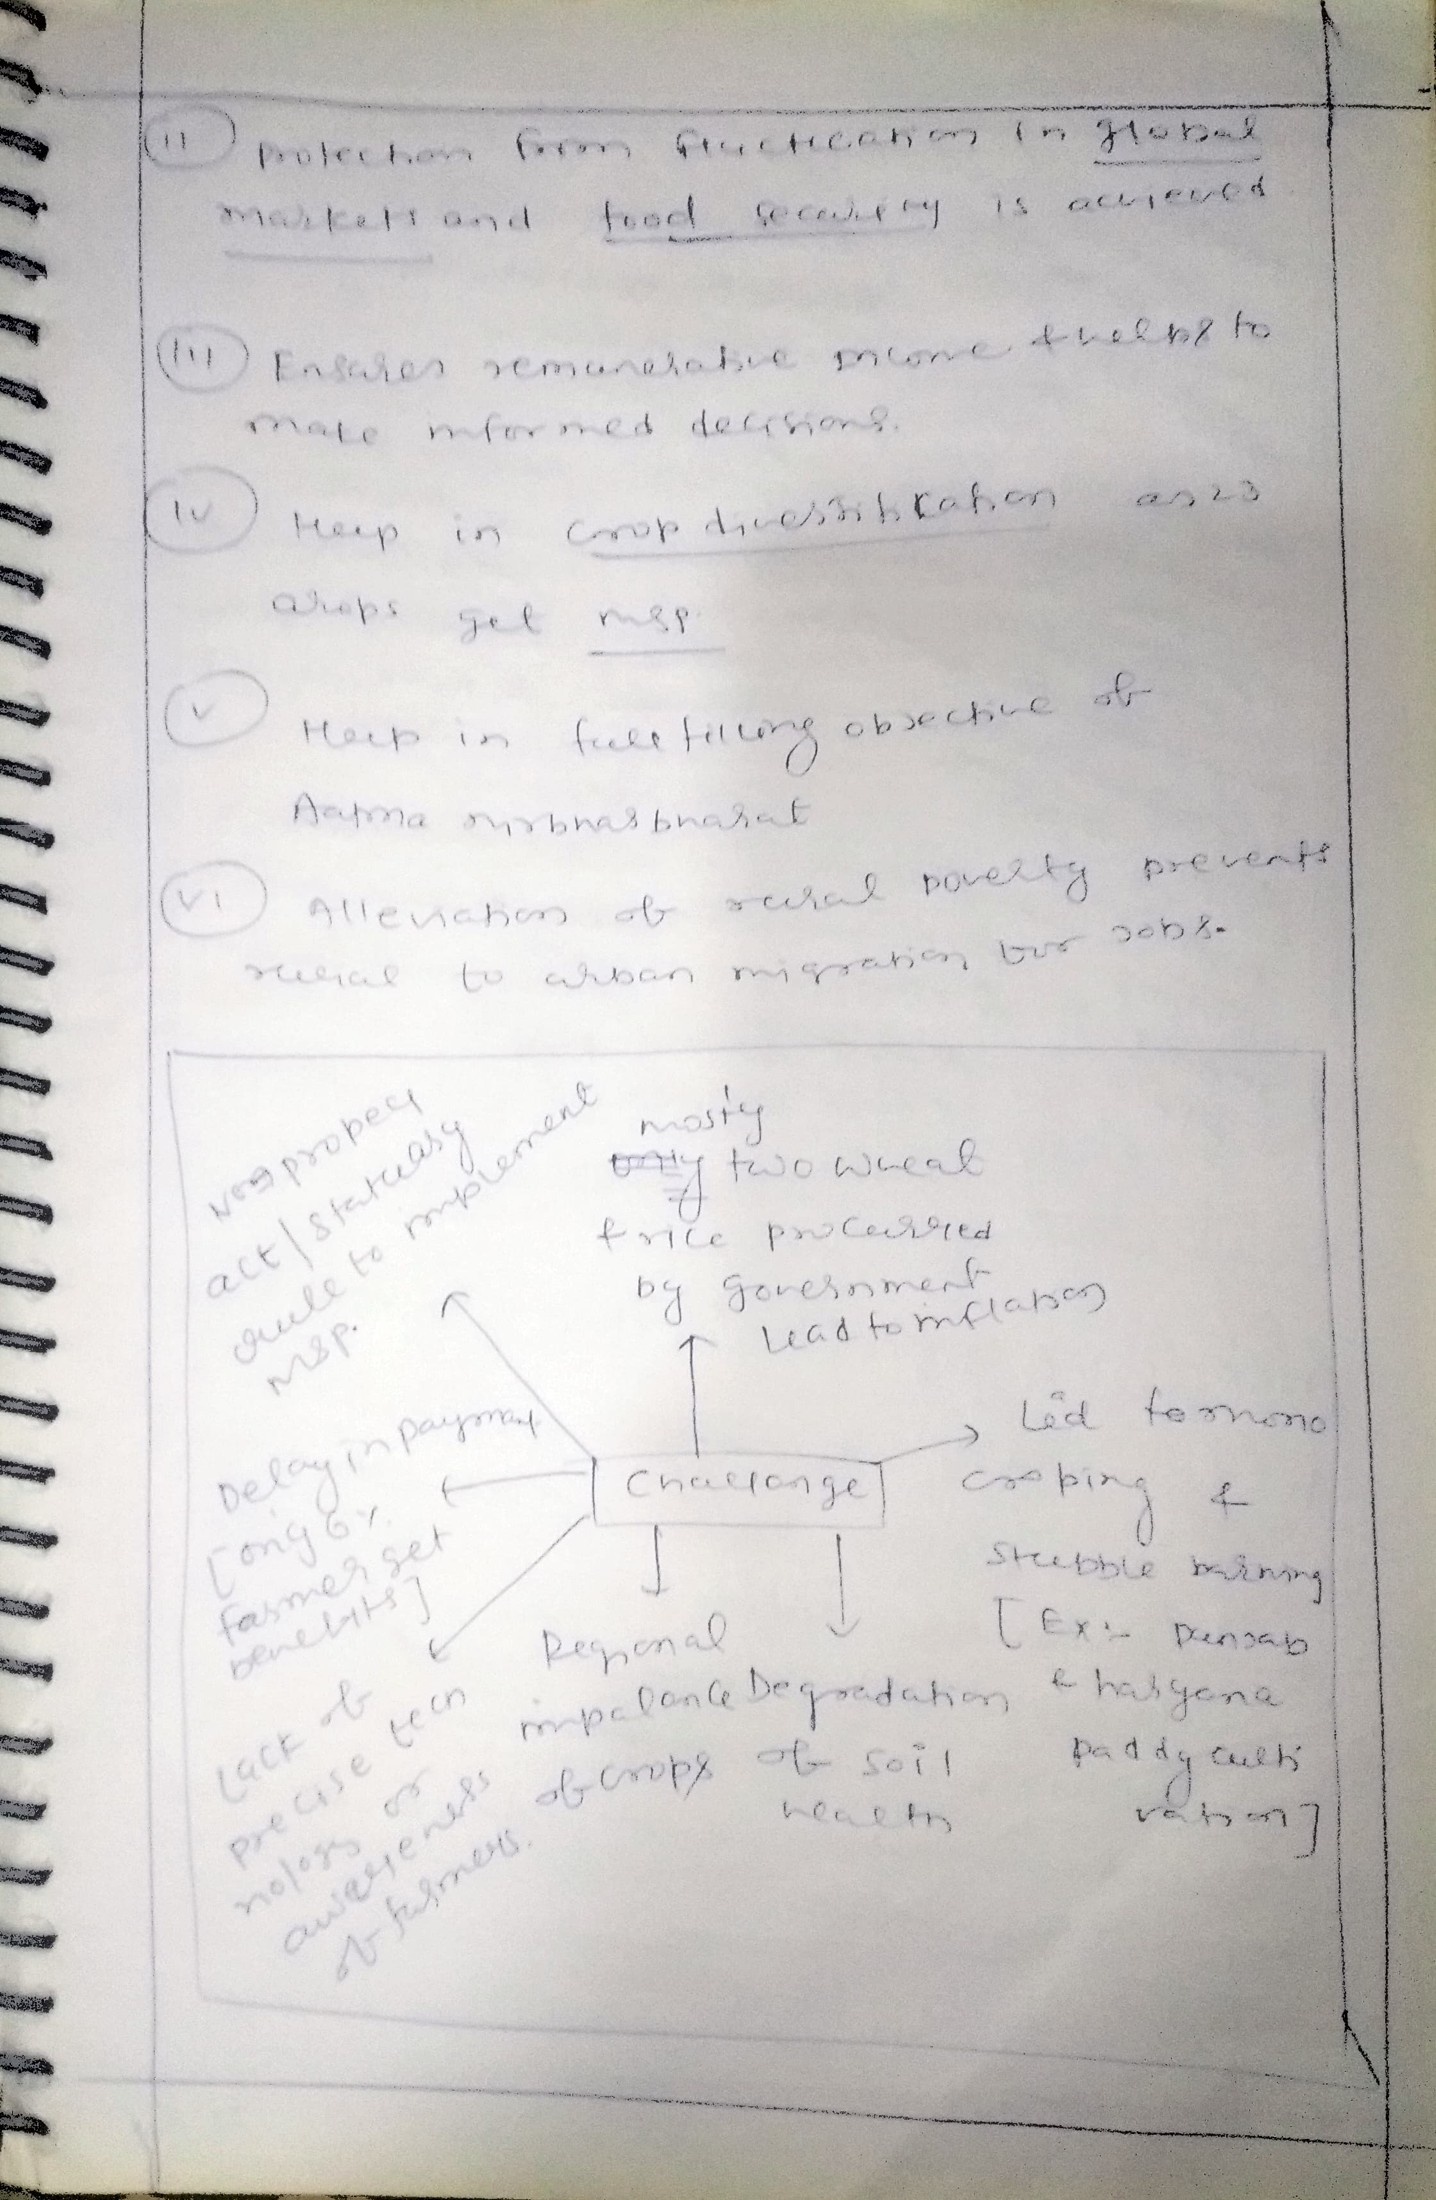 (ii) protection from fluctuation in global
markets and food security is achieved
(iii) Ensures remunerative income & helps to
make informed decisions.
(iv) Help in crop diversification as 23
crops get msp.
(v) Help in fullfilling objective of
Aatma nirbhar bharat
(vi) Alleviation of rural poverty prevents
rural to urban migration for jobs.
No proper
act / statuary
rule to implement
msp.
mostly
two wheat
& rice procurred
by government
Lead to inflation
Challange
Led to mono
croping &
stubble burning
[Ex:- Punjab
& haryana
paddy culti
vation]
Delay in payment
[only 6%
farmer get
benefits]
Lack of
precise tech
nology or
awareness
of farmers.
Regional
imbalance
of crops
Degradation
of soil
health